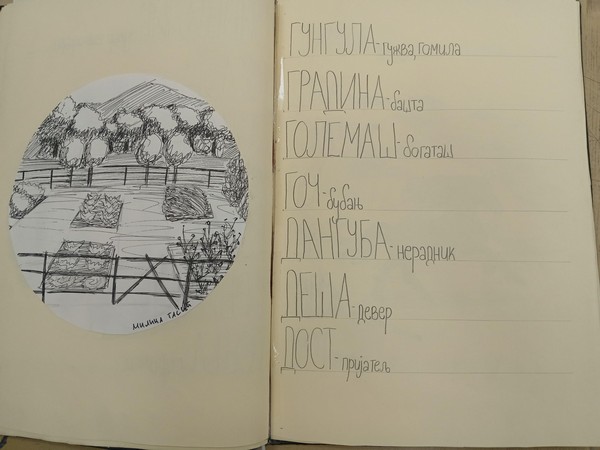 МИЛИНА ТАСИЋ
ГУНГУЛА-гужва, гомила
ГРАДИНА-башта
ГОЛЕМАШ-богаташ
ГОЧ-бубањ
ДАНГУБА-нерадник
ДЕША-девер
ДОСТ-пријатељ